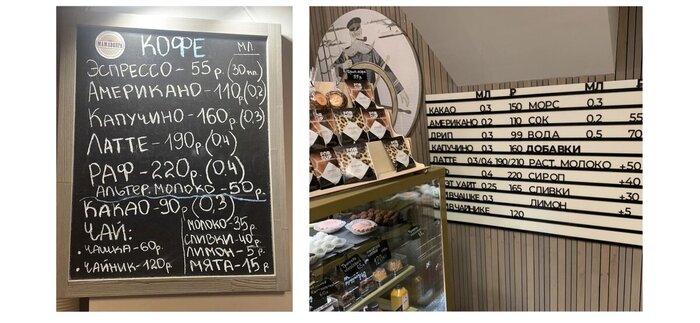 КОФЕ МЛ.
ЭСПРЕССО - 55 р. (30 мл.)
АМЕРИКАНО - 110 р. (0,2)
КАПУЧИНО - 160 р. (0,3)
ЛАТТЕ - 190 р. (0,4)
РАФ - 220 р. (0,4)
АЛЬТЕР. МОЛОКО - 50 р.
КАКАО - 90 р. (0,3)
ЧАЙ:
• ЧАШКА - 60 р.
• ЧАЙНИК - 120 р.
МОЛОКО - 35 р.
СЛИВКИ - 40 р.
ЛИМОН - 5 р.
МЯТА - 15 р.
МЛ Р МЛ Р
КАКАО 0.3 150 МОРС 0.3
АМЕРИКАНО 0.2 110 СОК 0.2 55
ДРИП 0.3 99 ВОДА 0.5 70
КАПУЧИНО 0.3 160 ДОБАВКИ
ЛАТТЕ 0.3/0.4 190/210 РАСТ. МОЛОКО +50
0.4 220 СИРОП +40
УАЙТ 0.25 165 СЛИВКИ +30
ЧАШКЕ 0.3 ЛИМОН +5
ЧАЙНИКЕ 120